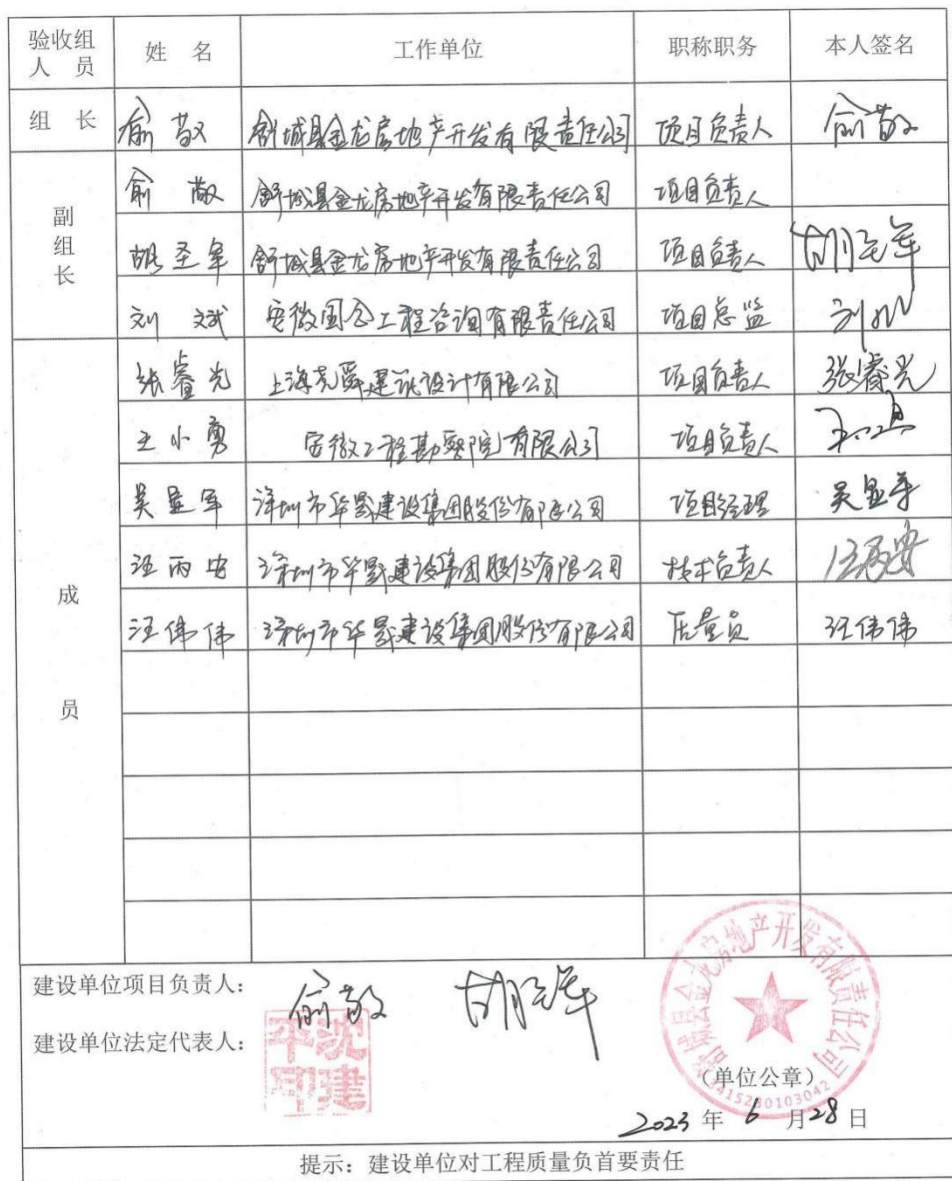 验收组人 员 姓 名 工作单位 职称职务 本人签名
组 长 俞敬 舒城县金龙房地产开发有限责任公司 项目负责人 俞敬
副组长
俞敬 舒城县金龙房地产开发有限责任公司 项目负责人
胡圣军 舒城县金龙房地产开发有限责任公司 项目负责人 胡圣军
刘斌 安徽国合工程咨询有限责任公司 项目总监 刘斌
成 员
张睿光 上海尧舜建筑设计有限公司 项目负责人 张睿光
王小勇 安徽工程勘察院有限公司 项目负责人
吴显军 深圳市华晟建设集团股份有限公司 项目经理 吴显军
汪丙安 深圳市华晟建设集团股份有限公司 技术负责人 汪丙安
汪伟伟 深圳市华晟建设集团股份有限公司 质量员 汪伟伟
建设单位项目负责人: 俞敬 胡圣军
建设单位法定代表人: 沈建平印
舒城县金龙房地产开发有限责任公司
(单位公章)
2023 年 6 月 28 日
提示:建设单位对工程质量负首要责任